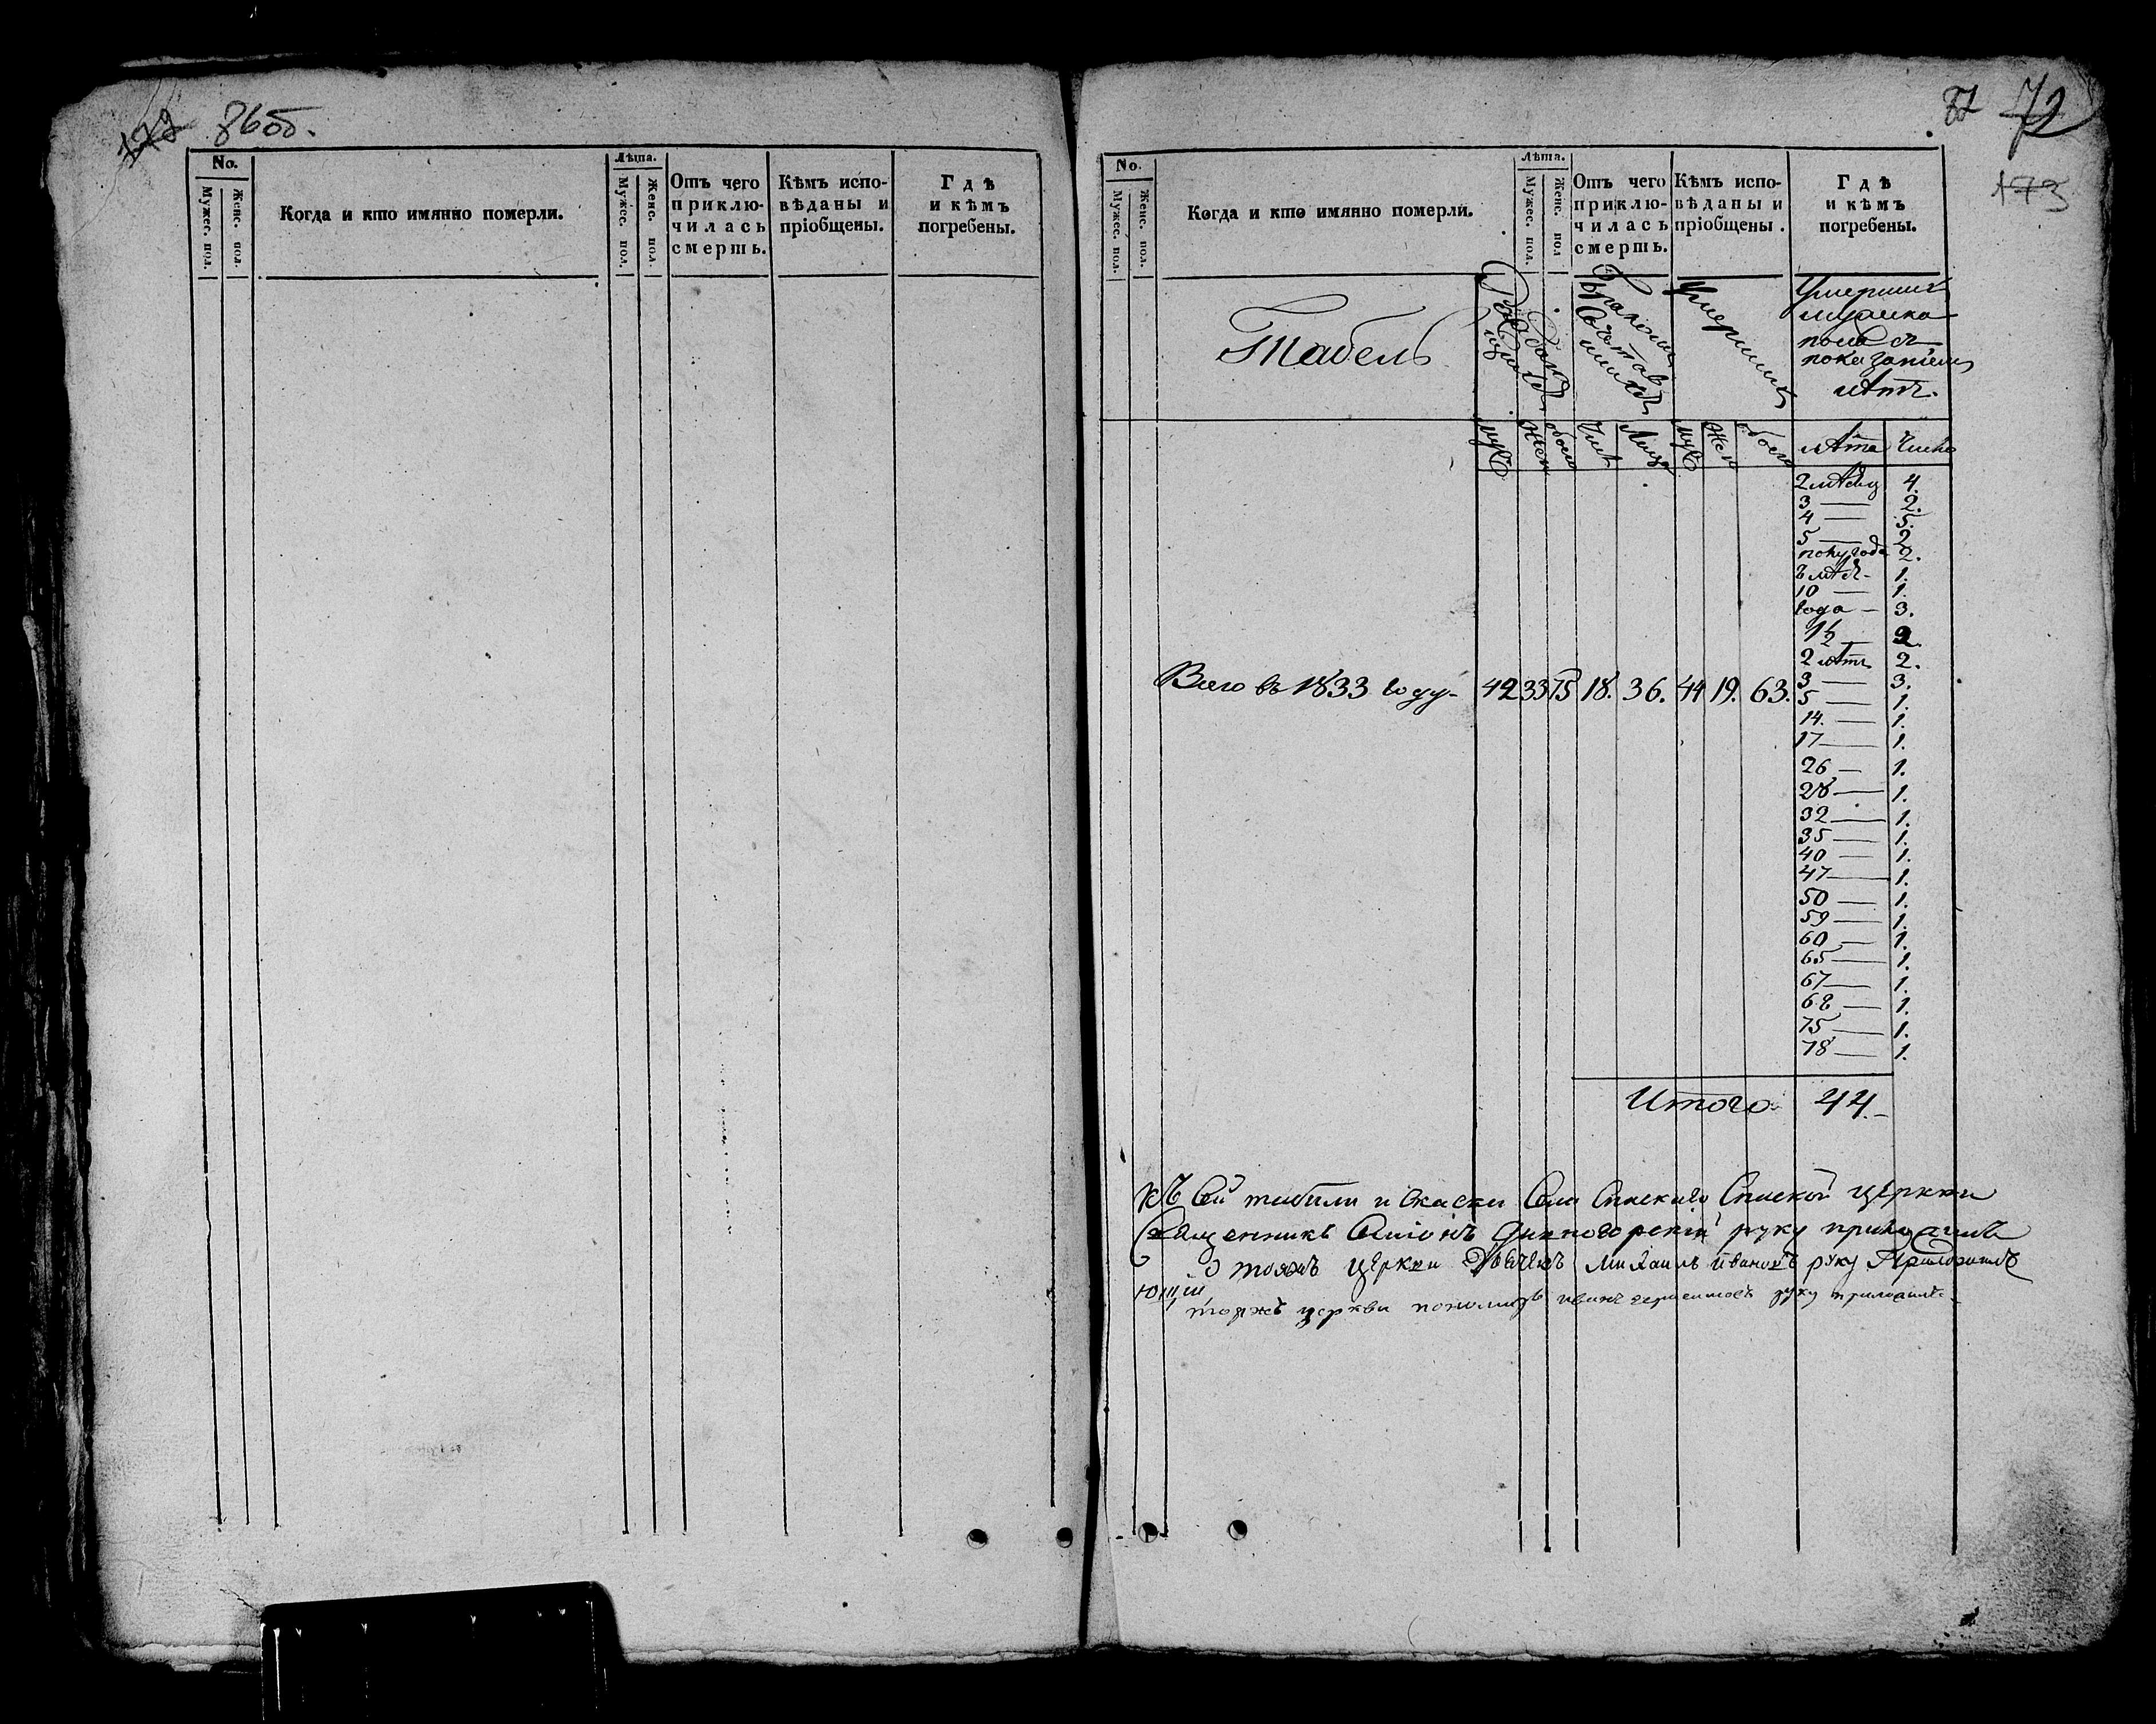 86об.
No.
Мужес. пол.
Женс. пол.
Когда и кто имянно померли.
Лѣта.
Мужес. пол.
Женс. пол.
Отъ чего приклю-чилась смерть.
Кѣмъ испо-вѣданы и пріобщены.
Гдѣ и кѣмъ погребены.
87 72
173
No.
Мужес. пол.
Женс. пол.
Когда и кто имянно померли.
Лѣта.
Мужес. пол.
Женс. пол
Отъ чего приклю-чилась смерть.
Кѣмъ испо-вѣданы и пріобщены.
Гдѣ и кѣмъ погребены.
Табель
Умершихъ
Умершихъ
мужеска
пола съ
показаніем
лѣтъ.
муж
жен
обоего
Чис
Лица
муж
Жен
обоего
лѣта Число
2 мѣсяц 4.
3 — 2.
4 — 5.
5 — 2
полугода 2.
8 мѣс - 1.
10 — 1.
Года — 3.
1½ — 2
2 лѣт 2.
Всего въ 1833 году - 42 33 75 18. 36. 44 19. 63.
3 — 3.
5 — 1.
14. — 1.
17 — 1.
26 — 1.
28 — 1.
32 — 1.
35 — 1.
40 — 1.
47 — 1.
50 — 1.
59 — 1.
60 — 1.
65 — 1.
67 — 1.
68 — 1.
75 — 1.
78 — 1.
Итого 44.-
Къ сей табели и скаски Села Спаскаго Спаской церкви
Священникъ Симіонъ руку приложилъ
тояжъ церкви Михаилъ Ивановъ руку Приложилъ
тояжъ церкви пономарь иванъ руку приложилъ